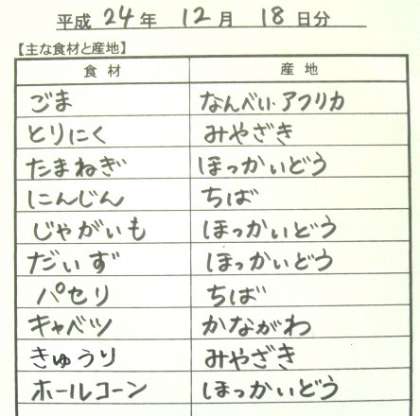 平成 24 年 12 月 18 日分
【主な食材と産地】
食材 産地
ごま なんべい・アフリカ
とりにく みやざき
たまねぎ ほっかいどう
にんじん ちば
じゃがいも ほっかいどう
だいず ほっかいどう
パセリ ちば
キャベツ かながわ
きゅうり みやざき
ホールコーン ほっかいどう